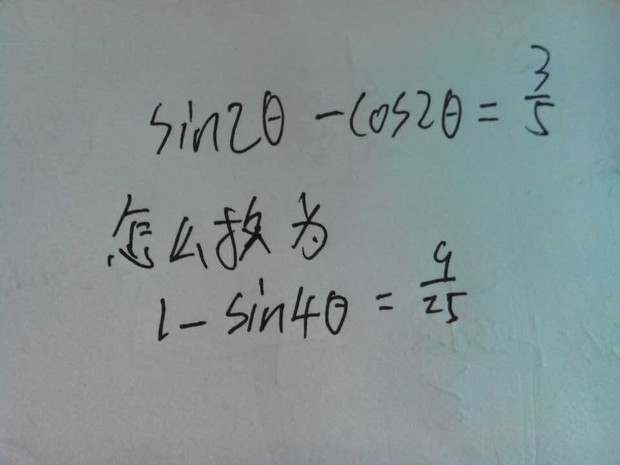 sin2θ - cos2θ = 3/5
怎么换为
1 - sin4θ = 9/25